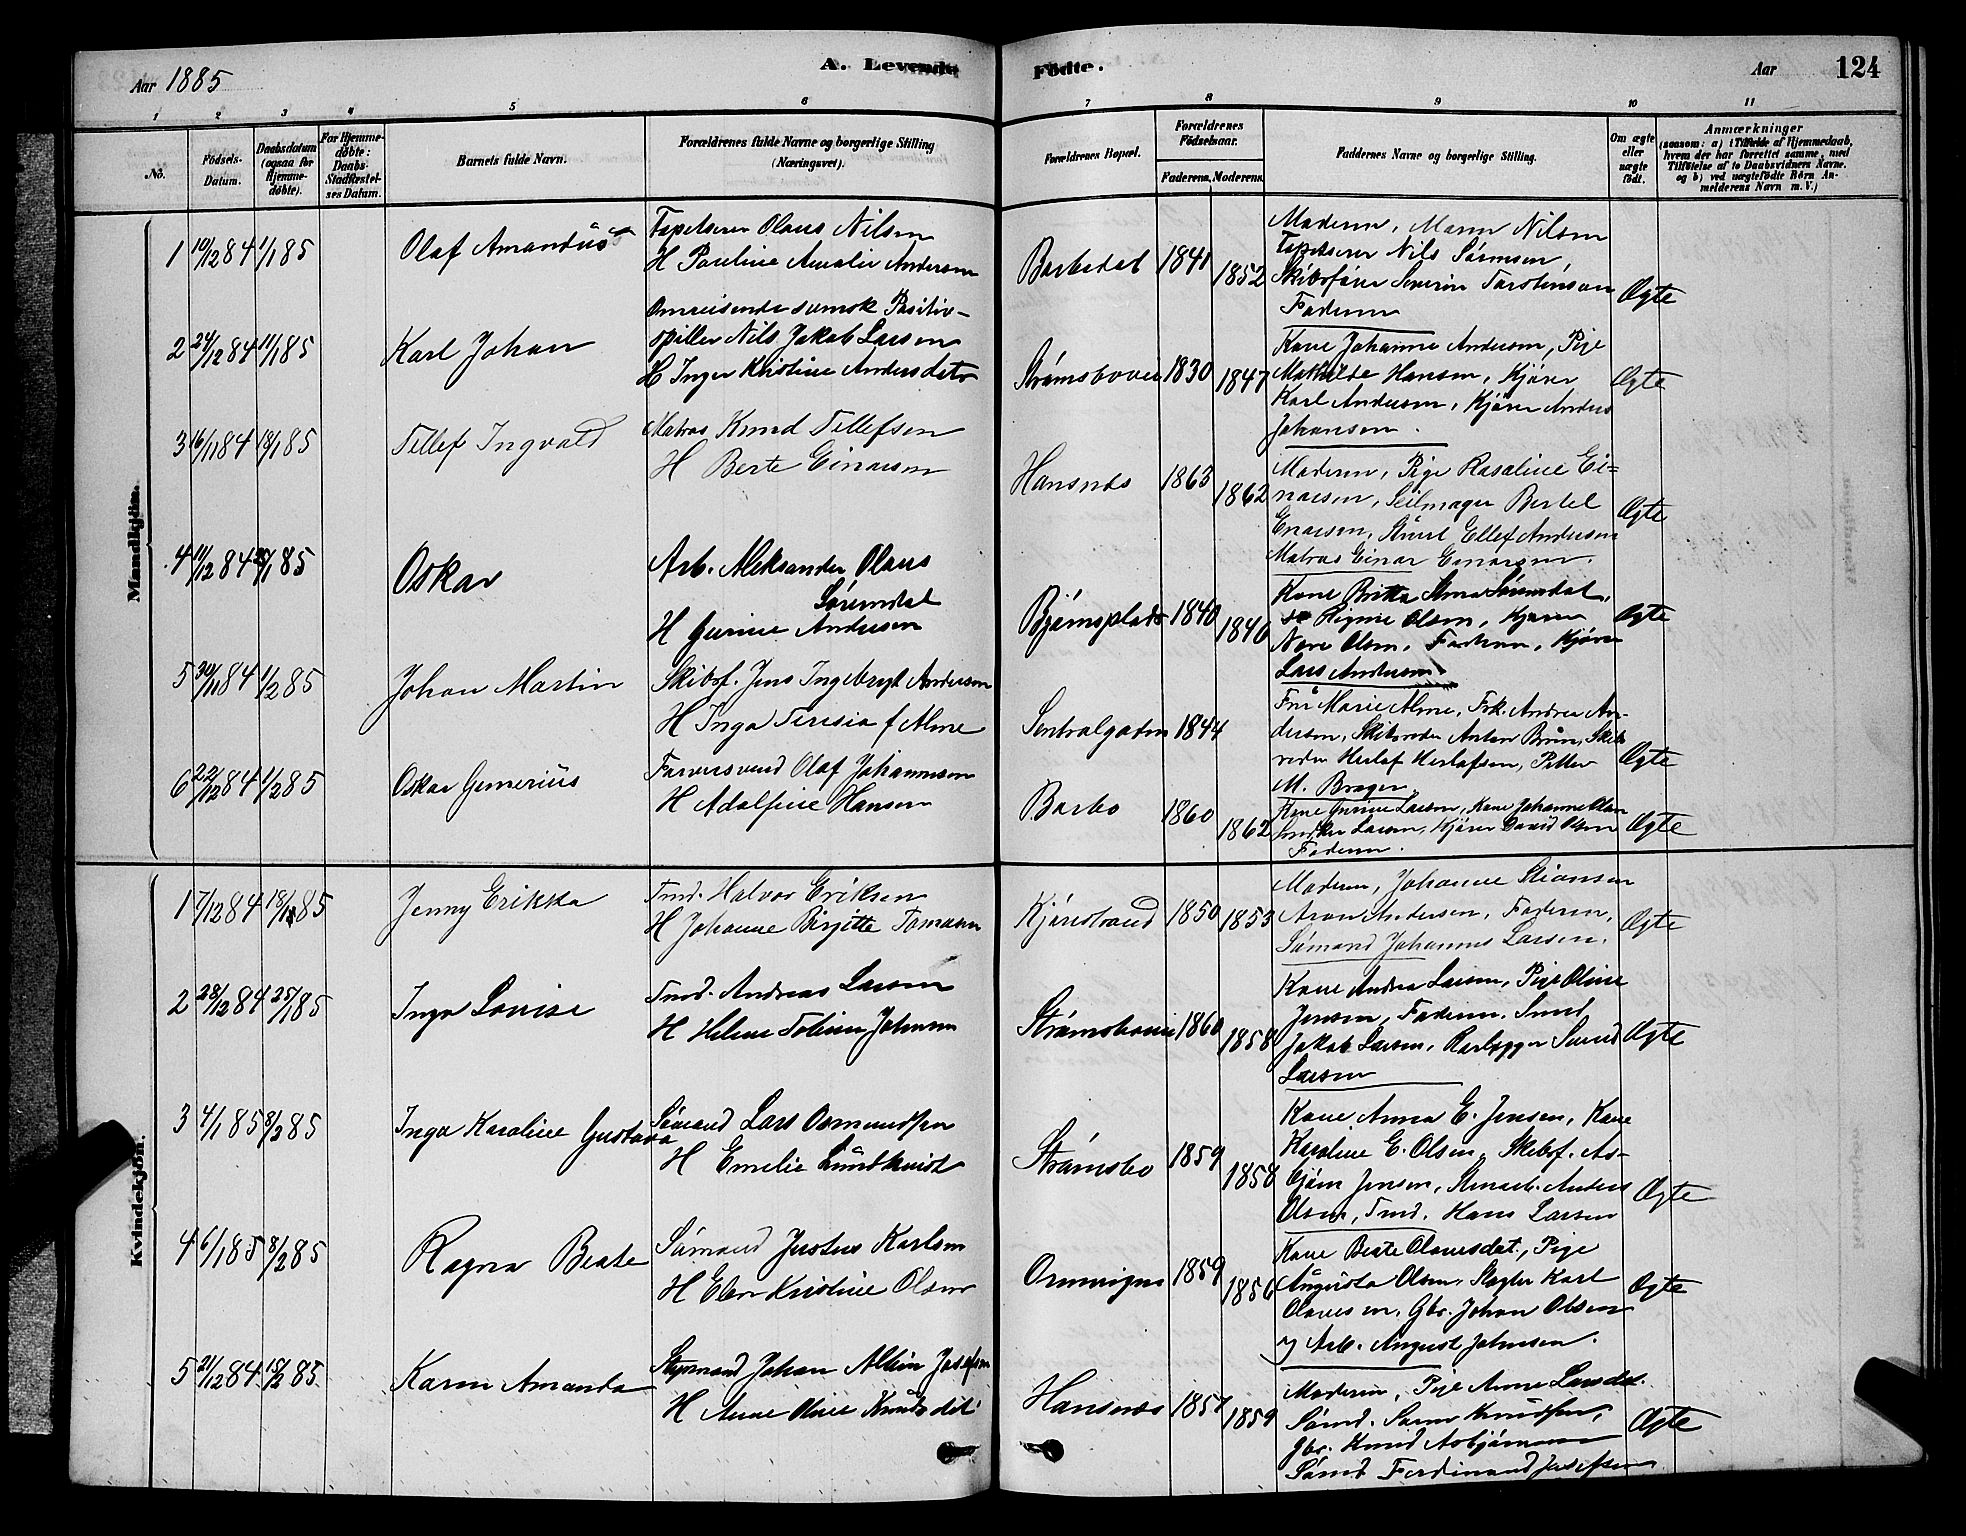 Aar 1885
A. Levende
Födte.
Aar
124
1
2
3
4
5
6
7
8
9
10
11
No.
Födsels-
Datum.
Daabsdatum
(ogsaa for
Hjemme-
döbte).
For Hjemme-
döbte:
Daabs-
Stadfæstel-
ses Datum.
Barnets fulde Navn.
Forældrenes fulde Navne og borgerlige Stilling
(Næringsvei).
Forældrenes Bopæl.
Forældrenes
Födselsaar.
Faderens. Moderens.
Faddernes Navne og borgerlige Stilling.
Om ægte
eller
uægte
födt.
Anmærkninger
(saasom: a) i Tilfælde af Hjemmedaab,
hvem der har forrettet samme, med
Tilföielse af to Daabsvidners Navne.
og b) ved uægtefödte Börn An-
melderens Navn m. V.)
Mandkjön.
1 19/12 84 1/1 85 Olaf Amandus
Tapetserer Olaus Nilsen
H Pauline Amalie Andersen
Barbodal 1841 1852
Moderen, Maren Nilsen
Tapetserer Nils Sörensen,
Skibsförer Severin Torstensen
Faderen
Ægte
2 24/12 84 11/1 85 Karl Johan
Omreisende svensk Positiv-
spiller Nils Jakob Larsen
H Inger Kristine Andersdatr
Strömsboveien 1830 1847
Kone Johanne Andersen, Pige
Mathilde Hansen, Kjörer
Karl Andersen, Kjörer Anders
Johansen.
Ægte
3 16/11 84 18/1 85 Tellef Ingvald
Matros Knud Tellefsen
H Berte Einarsen
Hansnæs 1863 1862
Moderen, Pige Rosaline Ei-
narsen, Seilmager Bertel
Enarsen, Stuert Ellef Andersen
Matros Einar Einarsen.
Ægte
4 11/12 84 25/1 85 Oskar
Arb. Aleksander Olaus
Sörensdal
H Gurine Andersen
Björnsplads 1840 1846
Kone Britta Stina Sörensdal,
Olsen, Kjörer
Olsen, Faderen, Kjörer
Lars Andersen
Ægte
5 30/11 84 1/2 85 Johan Martin
Skibsf. Jens Ingebregt Andersen
H Inga Teresia f Alme
Sentralgaden 1844
Fru Marie Alme, Frk. Andrea An-
dersen, Skibsreder Anton Bruun, Skibs-
reder Herlof Herlofsen, Petter
M. Brager
Ægte
6 22/12 84 1/2 85 Oskar Gunerius
Farversvend Olaf Johannesen
H Adolfine Hansen
Barbo 1860 1862
Kone Gurine Larsen, Kone Johanne Olsen
Snedker Larsen, Kjörer David Olsen
Faderen.
Ægte
Kvindekjön.
1 7/12 84 18/1 85 Jenny Erikka
Tmd. Halvor Eriksen
H Johanne Birgitte Tomasen
Kjörestrand 1850 1853
Moderen, Johanne Stiansen
Aron Andersen, Faderen,
Sömand Johannes Larsen.
Ægte
2 28/12 84 25/1 85 Inga Lovise
Tmd. Andreas Larsen
H Helene Johnsen
Strömsboveien 1860 1858
Kone Andrea Larsen, Pige Oline
Jensen, Faderen. Smed
Jakob Larsen, Svend
Larsen
Ægte
3 4/1 85 8/2 85 Inga Karoline Gustava
Sömand Lars Osmundsen
H Emelie Lundkvist
Strömsbo 1859 1858
Kone Anna E. Jensen, Kone
Karoline E. Olsen, Skibsf. As-
björn Jensen, Stenarb. Anders
Olsen, Tmd. Hans Larsen
Ægte
4 6/1 85 8/2 85 Ragna Beate
Sömand Justus Karlsen
H Elen Kristine Olsen
1859 1856
Kone Beate Olausdat., Pige
Augusta Olsen, Slagter Karl
Olausen, Gbr. Johan Olsen
og Arb. August Johnsen.
Ægte
5 21/12 84 15/2 85 Karen Amanda
Styrmand Johan Albin Josefsen
H Anne Oline Knudsdat
Hansnæs 1857 1859
Moderen, Pige Anne Larsdat.
Sömd. Knudsen,
Gbr. Knud Asbjörnsen
Sömd Ferdinand Josefsen
Ægte